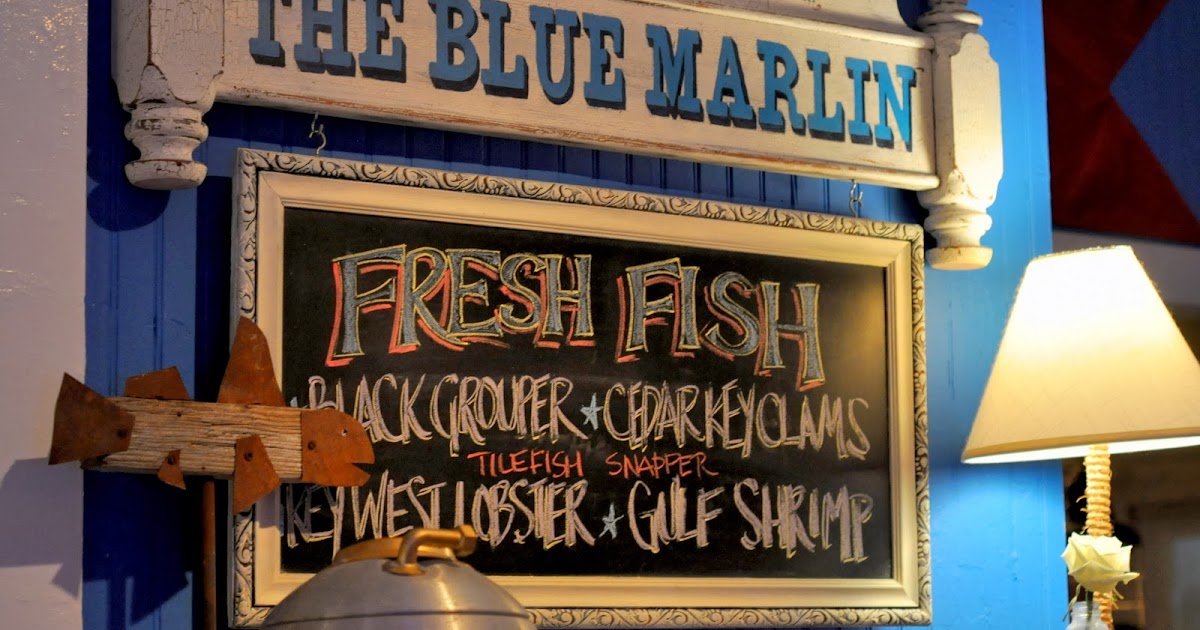 THE BLUE MARLIN
FRESH FISH
BLACK GROUPER ☆ CEDAR KEY CLAMS
TILEFISH SNAPPER
KEY WEST LOBSTER ☆ GULF SHRIMP